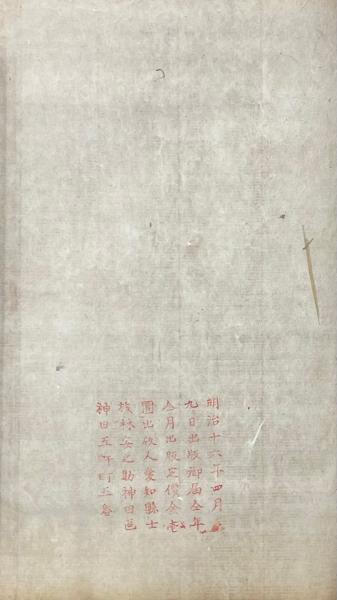 明治十六年四月
九日出版御届仝年
仝月出版定價金壱
圓出版人愛知縣士
族林安之助神田区
神田五軒町三番